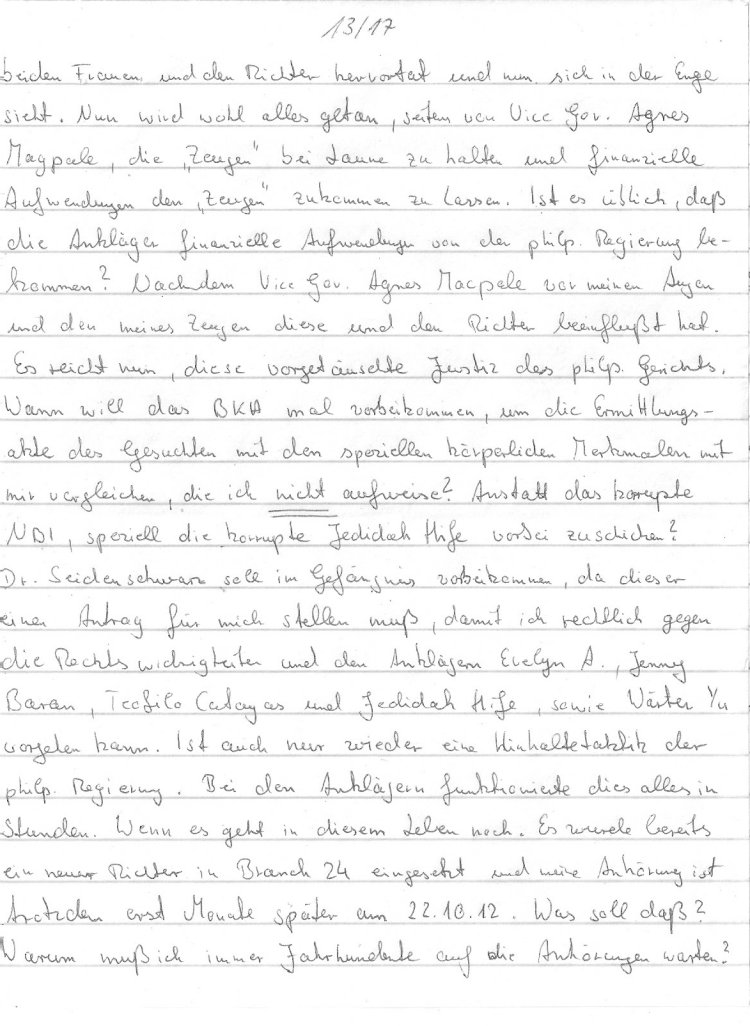 13/17
beiden Frauen und den Richter hervortat und nun sich in der Enge
sieht. Nun wird wohl alles getan, seiten von Vice Gov. Agnes
Magpale, die „Zeugen" bei Laune zu halten und finanzielle
Aufwendungen den „Zeugen" zukommen zu lassen. Ist es üblich, daß
die Ankläger finanzielle Aufwendungen von der philp. Regierung be-
kommen? Nachdem Vice Gov. Agnes Macpale vor meinen Augen
und den meines Zeugen diese und den Richter beeinflußt hat.
Es reicht nun, diese vorgetäuschte Justiz des philp. Gerichts.
Wann will das BKA mal vorbeikommen, um die Ermittlungs-
akte des Gesuchten mit den speziellen körperlichen Merkmalen mit
mir vergleichen, die ich nicht aufweise? Anstatt das korrupte
NBI, speziell die korrupte Jedidah Hife vorbei zuschicken?
Dr. Seidenschwarz soll im Gefängnis vorbeikommen, da dieser
einen Antrag für mich stellen muß, damit ich rechtlich gegen
die Rechtswidrigkeiten und den Anklägern Evelyn A., Jenny
Baran, Teofilo Catayas und Jedidah Hife, sowie Wärter Yu
vorgehen kann. Ist auch nur wieder eine Hinhaltetaktik der
philp. Regierung. Bei den Anklägern funktionierte dies alles in
Stunden. Wenn es geht in diesem Leben noch. Es wurde bereits
ein neuer Richter in Branch 24 eingesetzt und meine Anhörung ist
trotzdem erst Monate später am 22.10.12. Was soll daß?
Warum muß ich immer Jahrhunderte auf die Anhörungen warten?